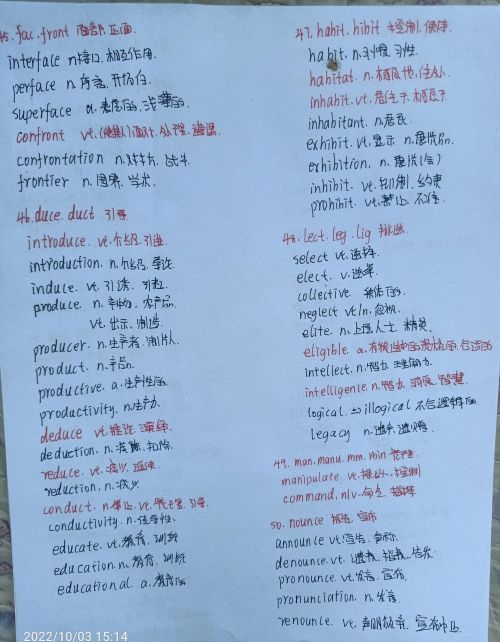 45. fac. front 面部 正面
interface n.接口. 相互作用.
perface n.序言. 开场白
superface a.表层的. 浅薄的
confront vt. 面对. 处理. 遭遇
confrontation n.对抗. 战斗
frontier n.国界. 学术.
46. duce. duct 引导
introduce. vt. 介绍. 引进.
introduction. n.介绍. 导论.
induce. vt. 引诱. 引起
produce. n. 产物. 农产品.
vt. 出示. 制造
producer. n.生产者. 制片人.
product. n.产品.
productive. a.生产性的
productivity. n.生产力.
deduce vt. 推论. 演绎
deduction. n.减除. 扣除.
reduce. vt. 减少.
reduction. n.减少
conduct. n.举止. vt. 管理. 引导.
conductivity. n.传导性.
educate. vt. 教育. 训练
education n. 教育. 训练
educational. a.教育的
47. habit. hibit
habit. n.习惯. 习性.
habitat. n.栖息地. 住处.
inhabit. vt.居住于. 栖息于
inhabitant. n.居民
exhibit. vt.显示 n.展览品.
exhibition. n.展览(会)
inhibit. vt.抑制. 约束
prohibit. vt.禁止.
48. lect. leg. lig 挑选
select vt.选择.
elect. v.选举
collective 集体的.
neglect vt/n. 忽视
elite. n.上层人士. 精英.
eligible a.有被选中的资格的. 合适的
intellect. n.智力. 理解力.
intelligence. n.智力. 洞察. 智慧
logical. ⇒ illogical 不合逻辑的
legacy n.遗产. 遗赠.
49. man. manu. mem. min 管理.
manipulate vt.操纵. 控制
command. n/v. 命令. 指挥
50. nounce 报告. 宣布
announce vt. 宣告. 声称.
denounce. vt. 谴责. 指责. 告发.
pronounce vt.发言. 宣布.
pronunciation. n.发言.
renounce. vt. 声明放弃. 宣布中止.
2022/10/03 15:14